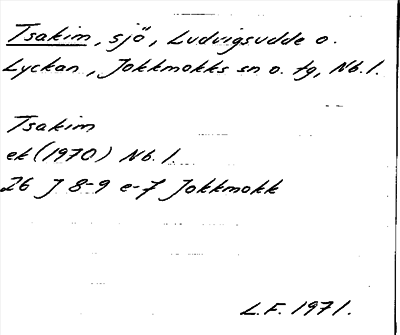 Tsakim, sjö, Ludvigsudde o.
Lyckan, Jokkmokks sn o. tg, Nb. l.
Tsakim
ek (1970) Nb. l.
26 J 8-9 e-f Jokkmokk
L.F. 1971.